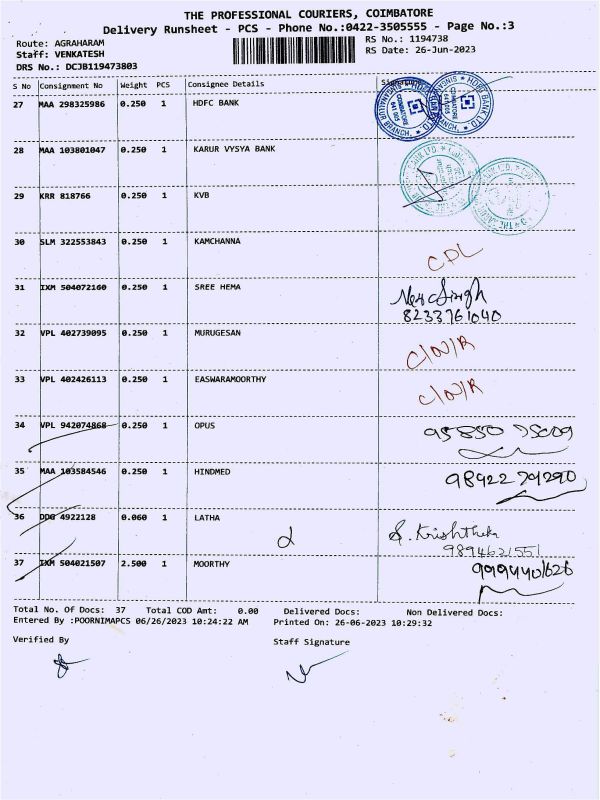 THE PROFESSIONAL COURIERS, COIMBATORE
Delivery Runsheet - PCS - Phone No.:0422-3505555 - Page No.:3
Route: AGRAHARAM RS No.: 1194738
Staff: VENKATESH RS Date: 26-Jun-2023
DRS No.: DCJB119473803
S No Consignment No Weight PCS Consignee Details Signature
27 MAA 298325986 0.250 1 HDFC BANK
28 MAA 103801047 0.250 1 KARUR VYSYA BANK
29 KRR 818766 0.250 1 KVB
30 SLM 322553843 0.250 1 KAMCHANNA CPL
31 IXM 504072160 0.250 1 SREE HEMA
8233761040
32 VPL 402739095 0.250 1 MURUGESAN C/N/R
33 VPL 402426113 0.250 1 EASWARAMOORTHY C/N/R
34 VPL 942074868 0.250 1 OPUS 95850 75009
35 MAA 103584546 0.250 1 HINDMED 98922 79290
36 DDG 4922128 0.060 1 LATHA
9894621551
37 IXM 504021507 2.500 1 MOORTHY
Total No. Of Docs: 37 Total COD Amt: 0.00 Delivered Docs: Non Delivered Docs:
Entered By :POORNIMAPCS 06/26/2023 10:24:22 AM Printed On: 26-06-2023 10:29:32
Verified By Staff Signature